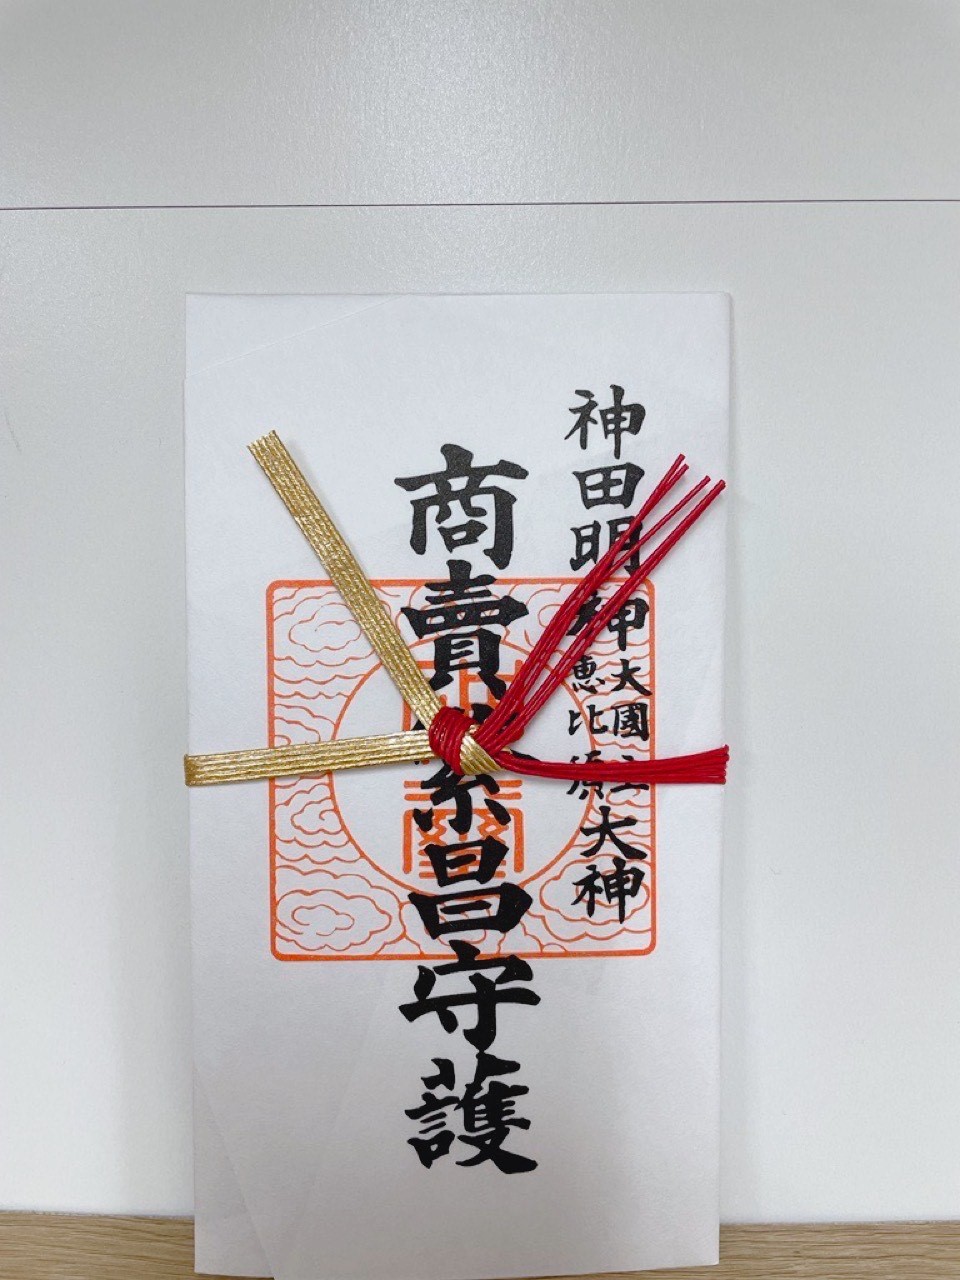 神田明神
大國主
恵比須
大神
商賣繁昌守護